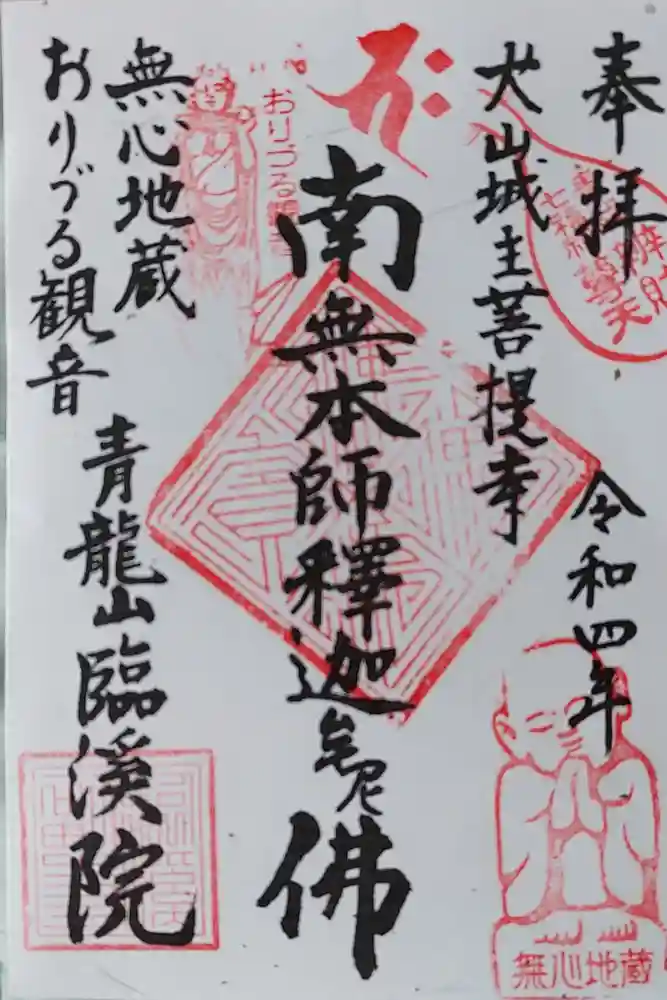 奉拝
令和四年
犬山城主菩提寺
南無本師釋迦牟尼佛
無心地蔵
おりづる観音
青龍山臨溪院
おりづる観音
無心地蔵